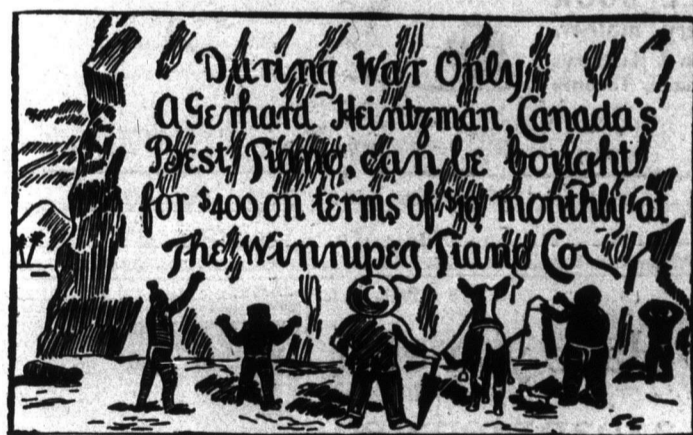 During War Only
A Gerhard Heintzman, Canada's
Best Piano, can be bought
for $400 on terms of $10 monthly at
The Winnipeg Piano Co